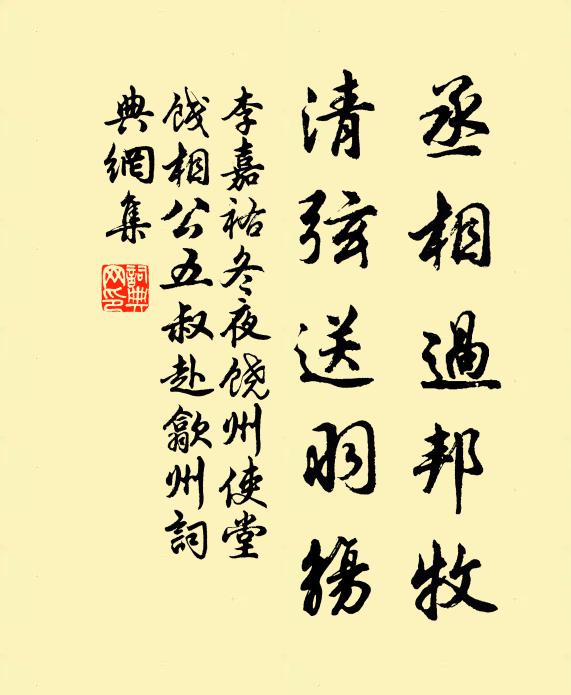 丞相過邦牧
清弦送羽觴
李嘉祐冬夜饒州使堂
餞相公五叔赴歙州詞
典網集
詞典
网印